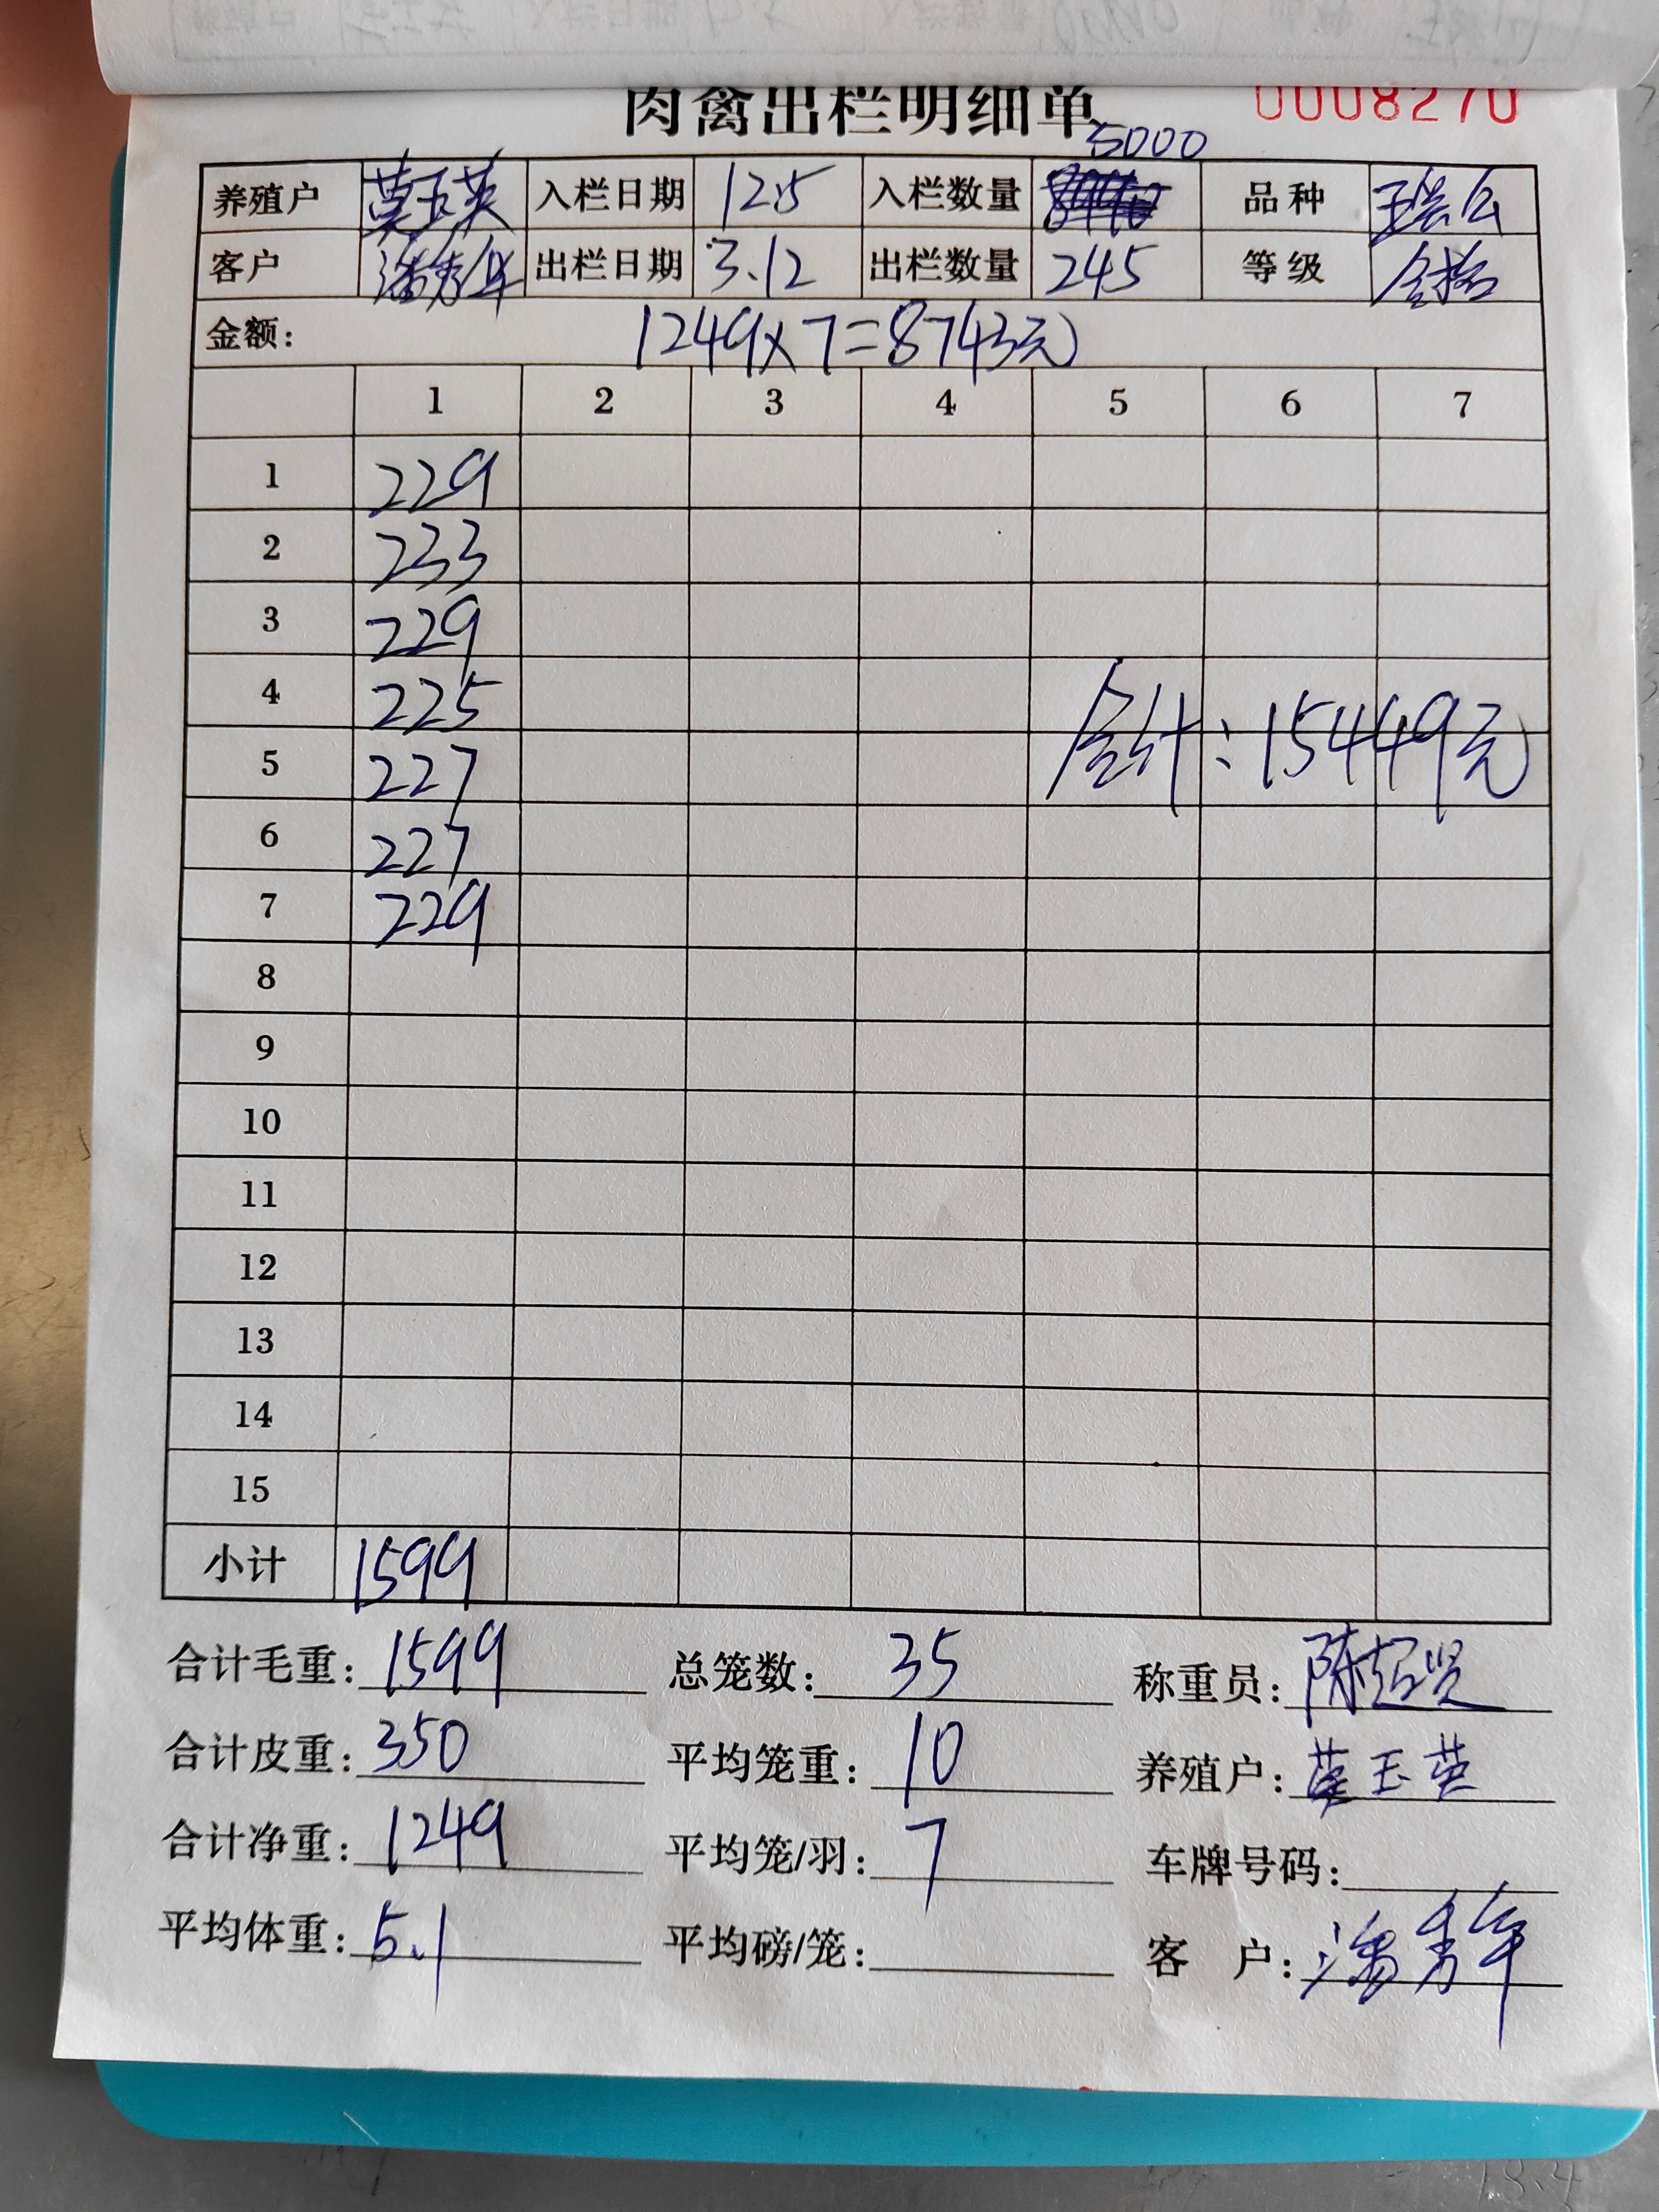 肉禽出栏明细单 0008270
5000
养殖户 莫玉英 入栏日期 12.5 入栏数量 品种
客户 潘秀年 出栏日期 3.12 出栏数量 245 等级 合格
金额： 1249×7=8743元
1 2 3 4 5 6 7
1 229
2 233
3 229
4 225
合计：15449元
5 227
6 227
7 229
8
9
10
11
12
13
14
15
小计 1599
合计毛重：1599 总笼数：35 称重员：陈超贤
合计皮重：350 平均笼重：10 养殖户：莫玉英
合计净重：1249 平均笼/羽：7 车牌号码：
平均体重：5.1 平均磅/笼： 客户：潘秀年